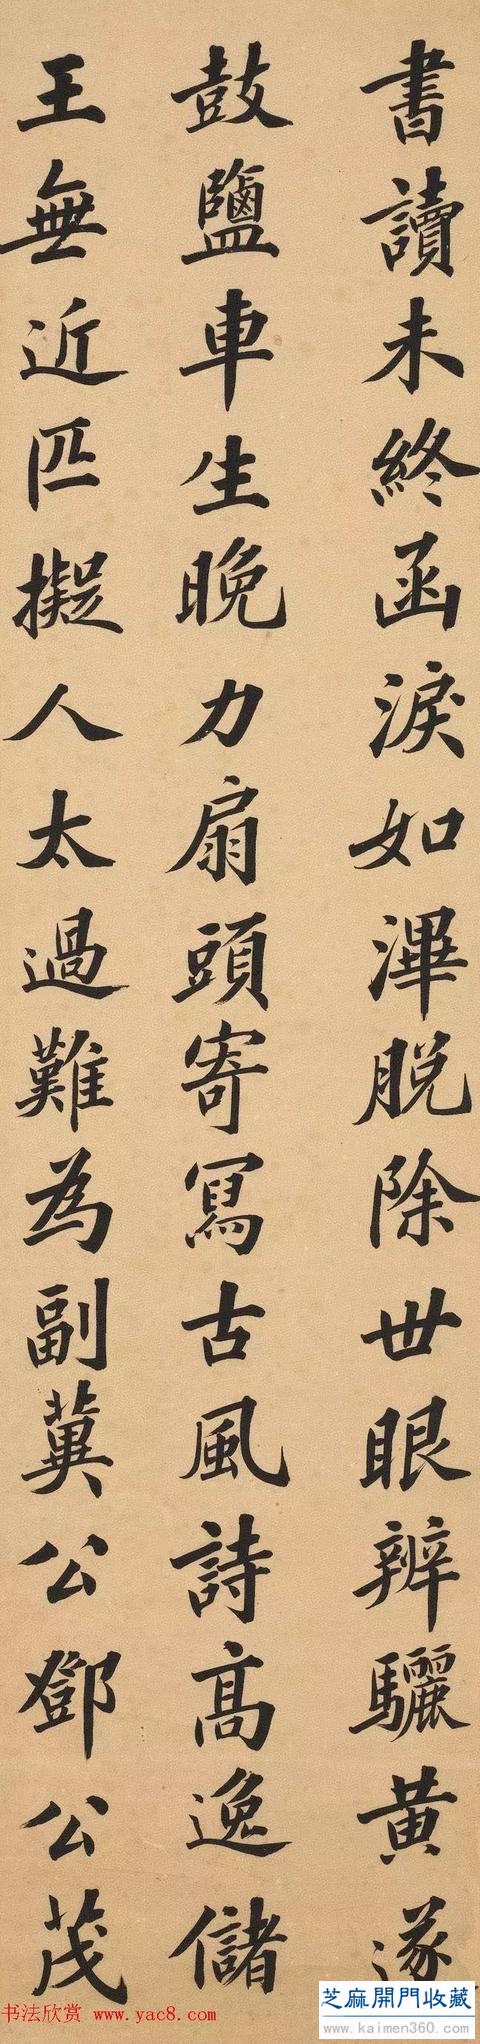 書讀未終函淚如渾脱除世眼辨驪黄遂
鼓鹽車生晚力扇頭寄寫古風詩高逸儲
王無近匹擬人太過難為副冀公鄧公茂
书法欣赏 www.yac8.com
芝麻開門收藏
www.kaimen360.com